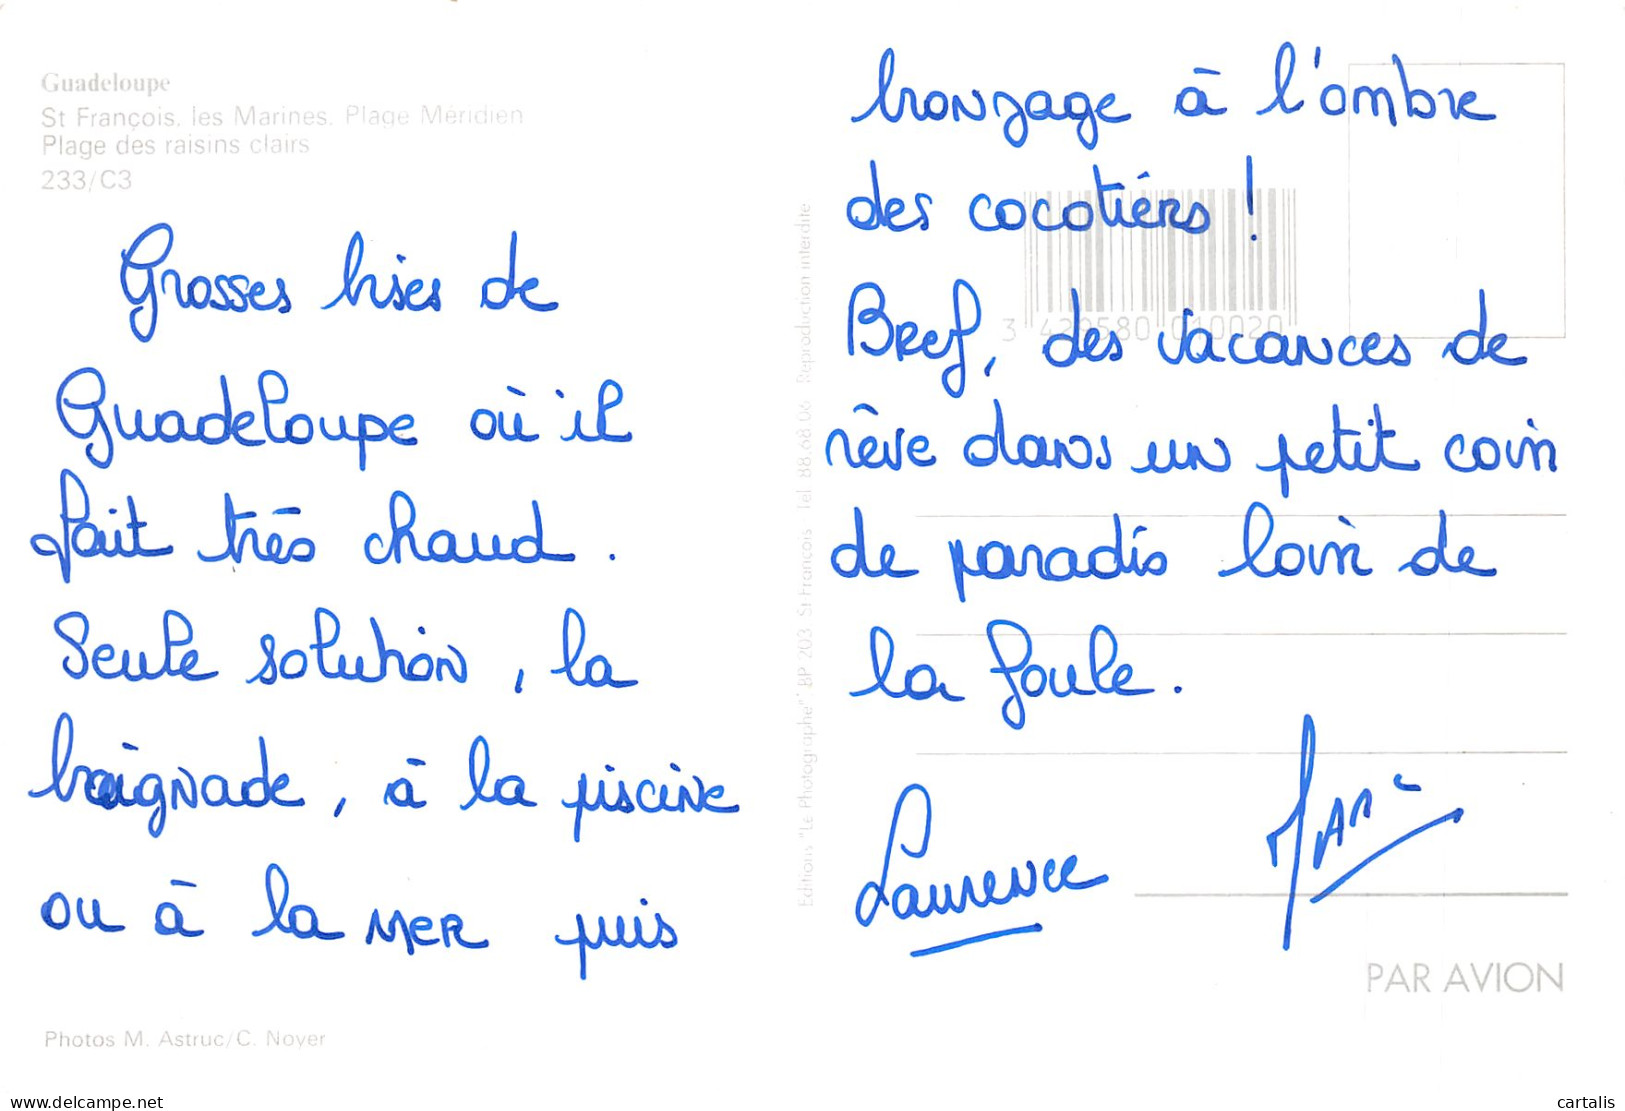 Guadeloupe
St François. les Marines. Plage Méridien
Plage des raisins clairs
233/C3
Grosses bises de
Guadeloupe où il
fait très chaud.
Seule solution, la
baignade, à la piscine
ou à la mer puis
Photos M. Astruc/C. Noyer
Editions "Le Photographe". BP 203 St François Tel 88.68.06 Reproduction interdite
bronzage à l'ombre
des cocotiers !
3 429580 010020
Bref, des vacances de
rêve dans un petit coin
de paradis loin de
la foule.
Laurence
PAR AVION
www.delcampe.net
cartalis